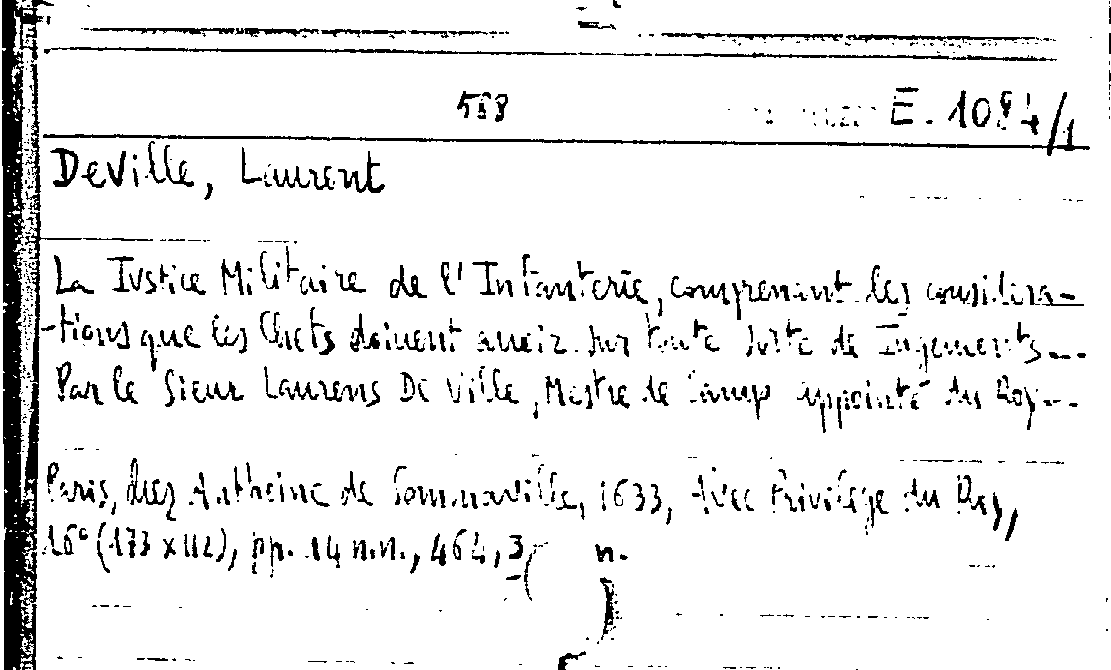 588 E. 1084/1
DeVille, Laurent
La Iustice Militaire de l'Infanterie, comprenant les considera-
-tions que les Chefs doiuent auoir sur toute sorte de Iugements...
Par le Sieur Laurens De Ville, Mestre de Camp appointé du Roy...
Paris, chez Anthoine de Sommaville, 1633, Avec Privilege du Roy,
16° (173 x 112), pp. 14 n.n., 464, 3 n.